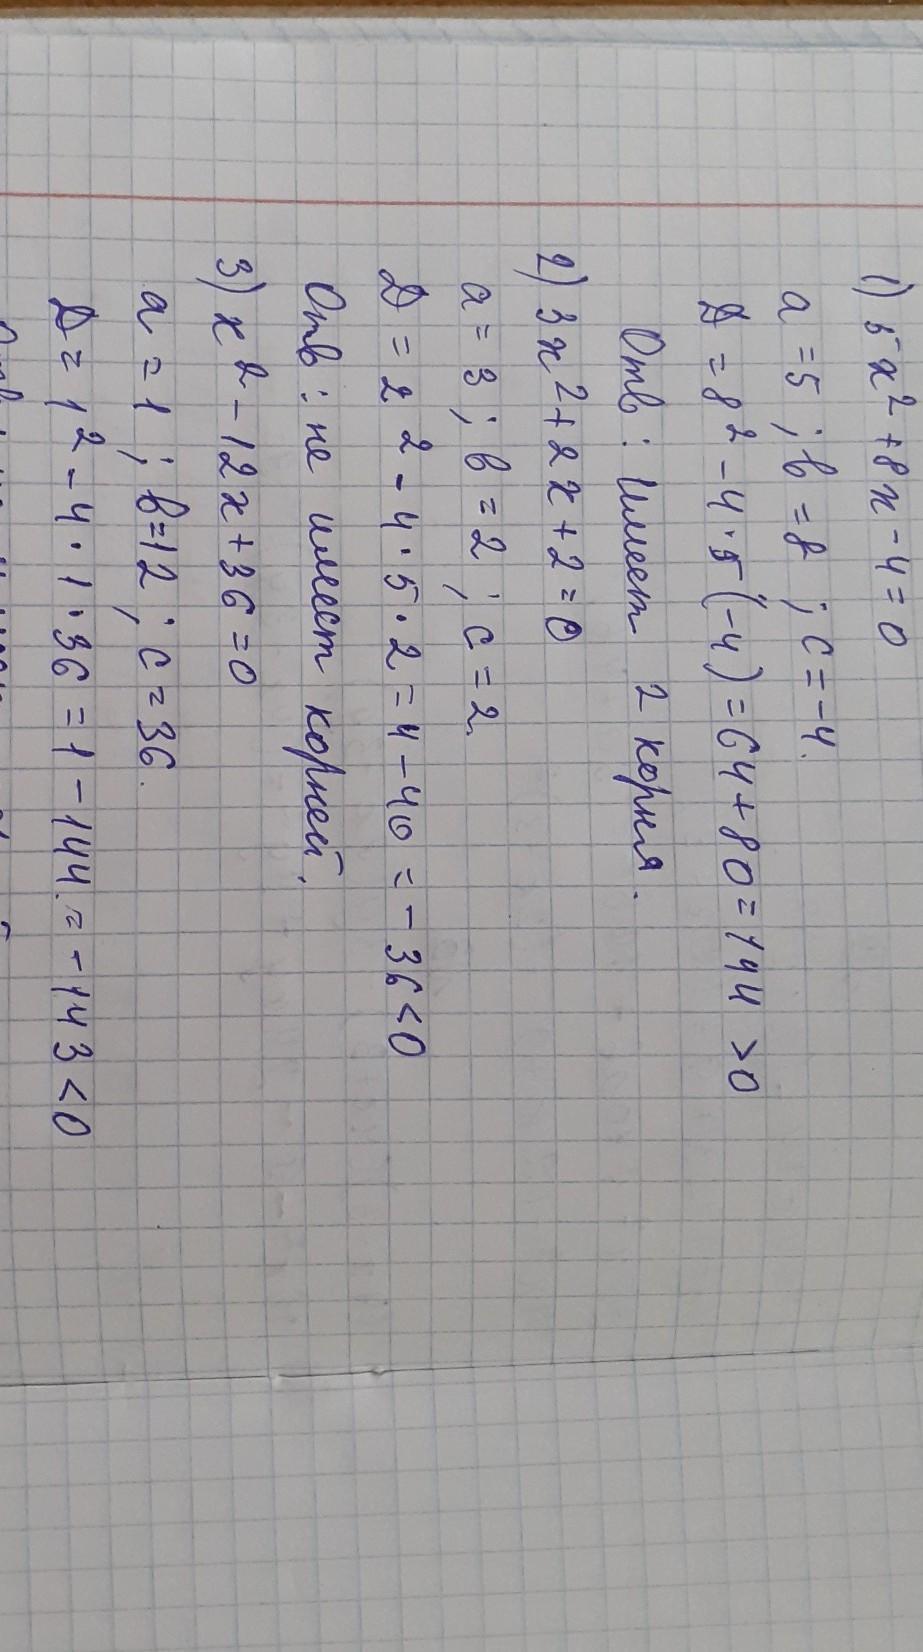 1) 5x² + 8x - 4 = 0
a = 5 ; b = 8 ; c = -4.
D = 8² - 4 · 5 (-4) = 64 + 80 = 144 > 0
Отв : Имеет 2 корня.
2) 3x² + 2x + 2 = 0
a = 3 ; b = 2 ; c = 2.
D = 2² - 4 · 5 · 2 = 4 - 40 = - 36 < 0
Отв : не имеет корней.
3) x² - 12x + 36 = 0
a = 1 ; b = 12 ; c = 36.
D = 1² - 4 · 1 · 36 = 1 - 144. = - 143 < 0